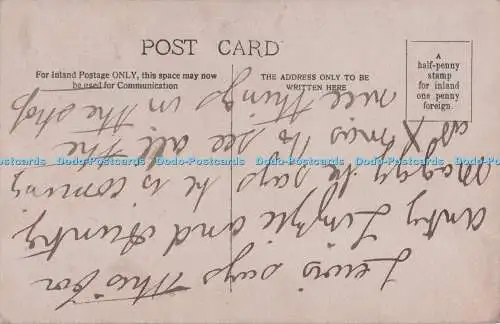 POST CARD
For Inland Postage ONLY, this space may now
be used for Communication
THE ADDRESS ONLY TO BE
WRITTEN HERE
A
half-penny
stamp
for inland
one penny
foreign.
Lewis says this for
Anty Lizzie and Aunty
Maggy he says he is coming
at Xmas to see all the
nice things in the shop
Dodo-Postcards Dodo-Postcards Dodo-Postcards Dodo-Postcards Dodo-Postcards